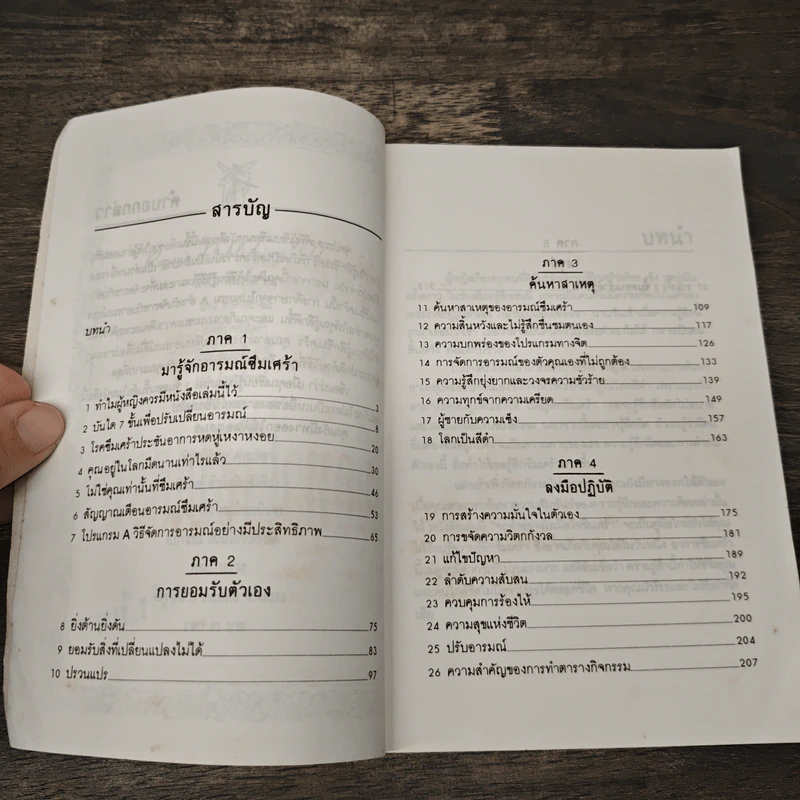 สารบัญ
บทนำ
ภาค 1
มารู้จักอารมณ์ซึมเศร้า
1 ทำไมผู้หญิงควรมีหนังสือเล่มนี้ไว้ 3
2 บันได 7 ขั้นเพื่อปรับเปลี่ยนอารมณ์ 8
3 โรคซึมเศร้าประชันอาการหดหู่เหงาหงอย 20
4 คุณอยู่ในโลกมืดนานเท่าไรแล้ว 30
5 ไม่ใช่คุณเท่านั้นที่ซึมเศร้า 46
6 สัญญาณเตือนอารมณ์ซึมเศร้า 53
7 โปรแกรม A วิธีจัดการอารมณ์อย่างมีประสิทธิภาพ 65
ภาค 2
การยอมรับตัวเอง
8 ยิ่งต้านยิ่งดัน 75
9 ยอมรับสิ่งที่เปลี่ยนแปลงไม่ได้ 83
10 ปรวนแปร 97
ภาค 3
ค้นหาสาเหตุ
11 ค้นหาสาเหตุของอารมณ์ซึมเศร้า 109
12 ความสิ้นหวังและไม่รู้สึกชื่นชมตนเอง 117
13 ความบกพร่องของโปรแกรมทางจิต 126
14 การจัดการอารมณ์ของตัวคุณเองที่ไม่ถูกต้อง 133
15 ความรู้สึกยุ่งยากและวงจรความชั่วร้าย 139
16 ความทุกข์จากความเครียด 149
17 ผู้ชายกับความเซ็ง 157
18 โลกเป็นสีดำ 163
ภาค 4
ลงมือปฏิบัติ
19 การสร้างความมั่นใจในตัวเอง 175
20 การขจัดความวิตกกังวล 181
21 แก้ไขปัญหา 189
22 ลำดับความสับสน 192
23 ควบคุมการร้องไห้ 195
24 ความสุขแห่งชีวิต 200
25 ปรับอารมณ์ 204
26 ความสำคัญของการทำตารางกิจกรรม 207